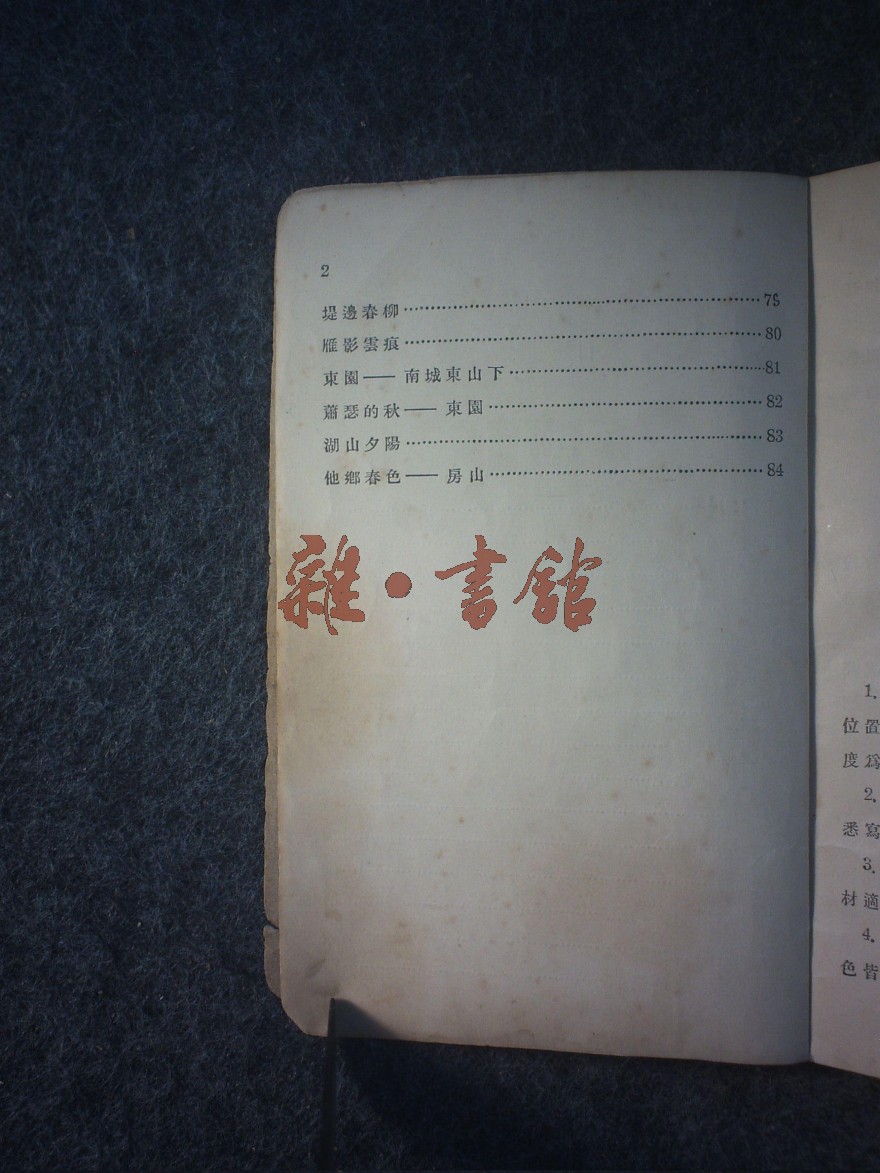 2
堤邊春柳………………75
雁影雲痕………………80
東園——南城東山下………………81
蕭瑟的秋——東園………………82
湖山夕陽………………83
他鄉春色——房山………………84
雜•書館
1.
位置
度爲
2.
悉寫
3.
材適
4.
色皆